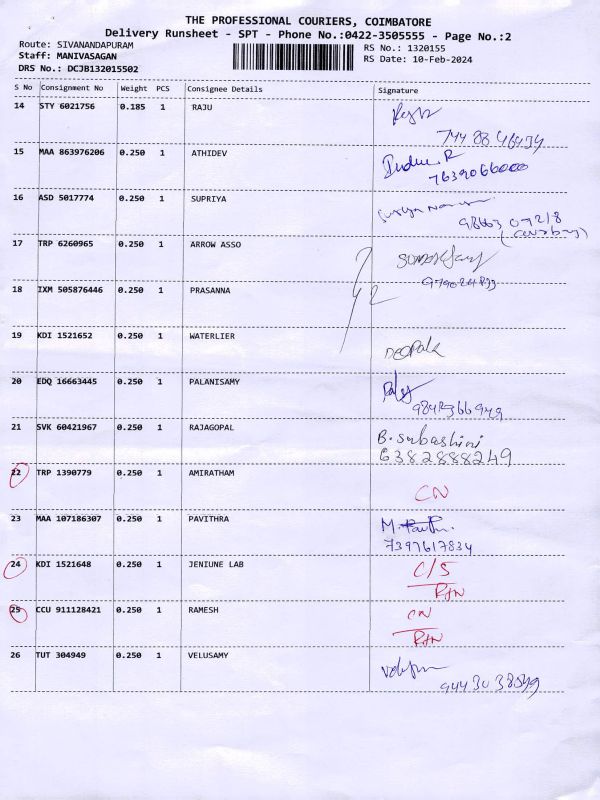 THE PROFESSIONAL COURIERS, COIMBATORE
Delivery Runsheet - SPT - Phone No.:0422-3505555 - Page No.:2
Route: SIVANANDAPURAM
RS No.: 1320155
Staff: MANIVASAGAN
RS Date: 10-Feb-2024
DRS No.: DCJB132015502
S No Consignment No Weight PCS Consignee Details Signature
14 STY 6021756 0.185 1 RAJU
15 MAA 863976206 0.250 1 ATHIDEV
7639066000
16 ASD 5017774 0.250 1 SUPRIYA
17 TRP 6260965 0.250 1 ARROW ASSO
18 IXM 505876446 0.250 1 PRASANNA
19 KDI 1521652 0.250 1 WATERLIER
20 EDQ 16663445 0.250 1 PALANISAMY
21 SVK 60421967 0.250 1 RAJAGOPAL
B. Subashini
6382888249
22 TRP 1390779 0.250 1 AMIRATHAM
CN
23 MAA 107186307 0.250 1 PAVITHRA
7397617834
24 KDI 1521648 0.250 1 JENIUNE LAB
C/S
RTN
25 CCU 911128421 0.250 1 RAMESH
CN
RTN
26 TUT 304949 0.250 1 VELUSAMY